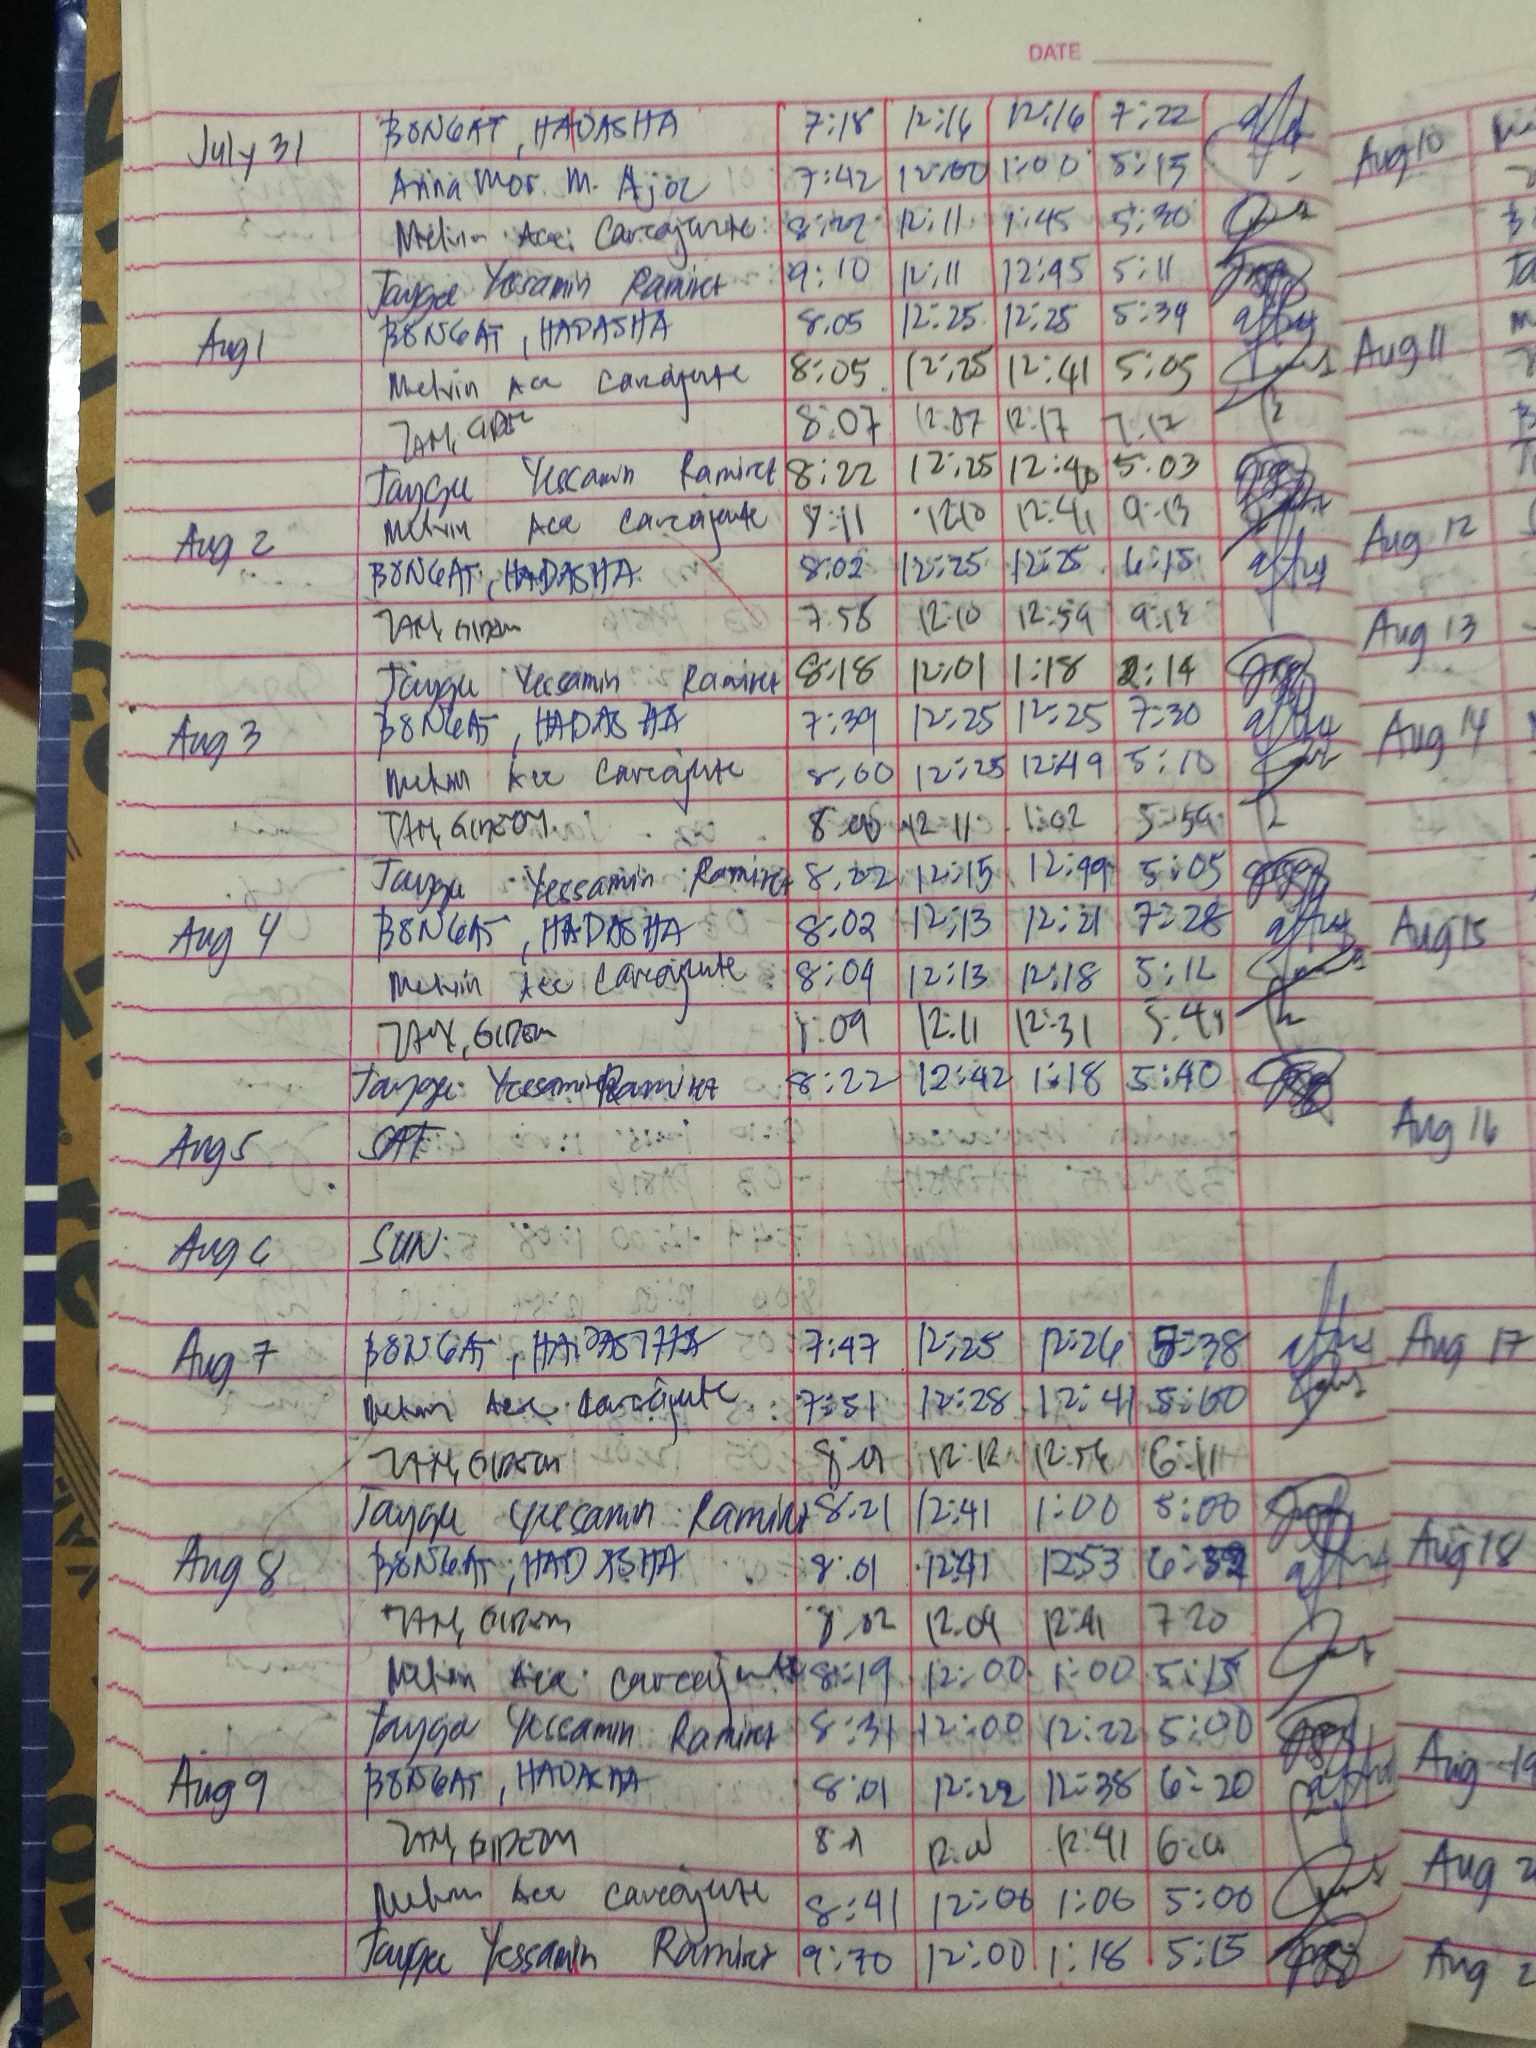 DATE
July 31 BONGAT, HADASHA 7:18 12:16 12:16 7:22
Anna Mor. M. Ajoc 7:42 12:00 1:00 5:15
Melvin Ace Carcajente 8:22 12:11 1:45 5:30
Yessamin Ramirez 9:10 12:11 12:45 5:11
Aug 1 BONGAT, HADASHA 8:05 12:25 12:25 5:39
Melvin Ace Carcajente 8:05 12:25 12:41 5:05
TAM, 8:07 12:07 12:17 7:12
Yessamin Ramirez 8:22 12:25 12:40 5:03
Aug 2 Melvin Ace Carcajente 12:10 12:41 9:13
BONGAT, HADASHA 8:02 12:25 12:25 6:15
TAM, GIDEON 7:58 12:10 12:59
Yessamin Ramirez 8:18 12:01 1:18 2:14
Aug 3 BONGAT, HADASHA 7:39 12:25 12:25 7:30
Melvin Ace Carcajente 8:00 12:25 12:49 5:10
TAM, GIDEON 12:11 1:02 5:59
Yessamin Ramirez 8:22 12:15 12:49 5:05
Aug 4 BONGAT, HADASHA 8:02 12:13 12:21 7:28
Melvin Ace Carcajente 8:04 12:13 12:18 5:12
TAM, GIDEON 8:09 12:11 12:31
Yessamin Ramirez 8:22 12:42 1:18 5:40
Aug 5 SAT
Aug 6 SUN:
Aug 7 BONGAT, HADASHA 7:47 12:25 12:26 5:38
Melvin Ace Carcajente 7:51 12:28 12:41 5:00
TAM, GIDEON 12:12 12:56 6:11
Yessamin Ramirez 8:21 12:41 1:00 5:00
Aug 8 BONGAT, HADASHA 8:01 12:41 12:53
TAM, GIDEON 8:02 12:09 12:41 7:20
Melvin Ace Carcajente 8:19 12:00 1:00 5:15
Yessamin Ramirez 8:31 12:00 12:22 5:00
Aug 9 BONGAT, HADASHA 8:01 12:22 12:38 6:20
TAM, GIDEON 12:41
Melvin Ace Carcajente 8:41 12:06 1:06 5:06
Yessamin Ramirez 12:00 1:18 5:15
Aug 10
Aug 11
Aug 12
Aug 13
Aug 14
Aug 15
Aug 16
Aug 17
Aug 18
Aug 19
Aug
Aug